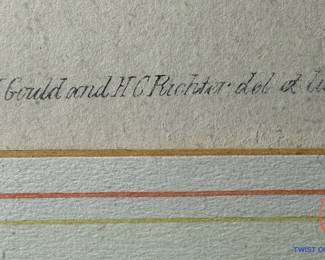 Gould and H C Richter. del et
TWIST O